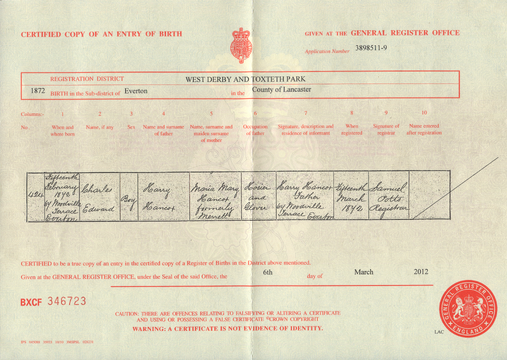 CERTIFIED COPY OF AN ENTRY OF BIRTH
GIVEN AT THE GENERAL REGISTER OFFICE
Application Number 3898511-9
REGISTRATION DISTRICT WEST DERBY AND TOXTETH PARK
1872 BIRTH in the Sub-district of Everton in the County of Lancaster
Columns:- 1 2 3 4 5 6 7 8 9 10
No. When and where born Name, if any Sex Name and surname of father Name, surname and maiden surname of mother Occupation of father Signature, description and residence of informant When registered Signature of registrar Name entered after registration
Fifteenth February 1872 64 Woodville Terrace Everton
Charles Edward
Boy
Harry Hamer
Maria Mary Hamer formerly
Hosier and Glover
Harry Hamer Father 64 Woodville Terrace Everton
Fifteenth March 1872
Samuel Potts Registrar
CERTIFIED to be a true copy of an entry in the certified copy of a Register of Births in the District above mentioned.
Given at the GENERAL REGISTER OFFICE, under the Seal of the said Office, the 6th day of March 2012
BXCF 346723
CAUTION: THERE ARE OFFENCES RELATING TO FALSIFYING OR ALTERING A CERTIFICATE
AND USING OR POSSESSING A FALSE CERTIFICATE ©CROWN COPYRIGHT
WARNING: A CERTIFICATE IS NOT EVIDENCE OF IDENTITY.
GENERAL REGISTER OFFICE
ENGLAND